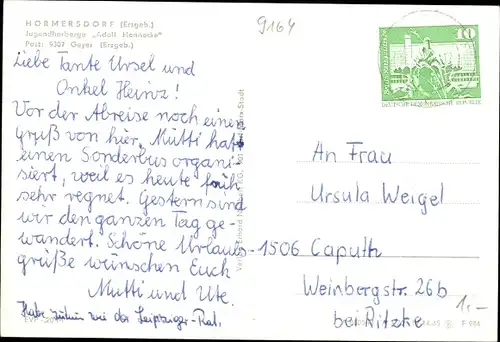 HORMERSDORF (Erzgeb.)
Jugendherberge „Adolf Hennecke"
Post: 9307 Geyer (Erzgeb.)
9164
Liebe Tante Ursel und
Onkel Heinz!
Vor der Abreise noch einen
Gruß von hier. Mutti hat
einen Sonderbus organi-
siert, weil es heute früh
sehr regnet. Gestern sind
wir den ganzen Tag ge-
wandert. Schöne Urlaubs-
grüße wünschen Euch
Mutti und Ute.
10
DEUTSCHE DEMOKRATISCHE REPUBLIK
An Frau
Ursula Weigel
1506 Caputh
Weinbergstr. 26b
bei Ritzke
1.-